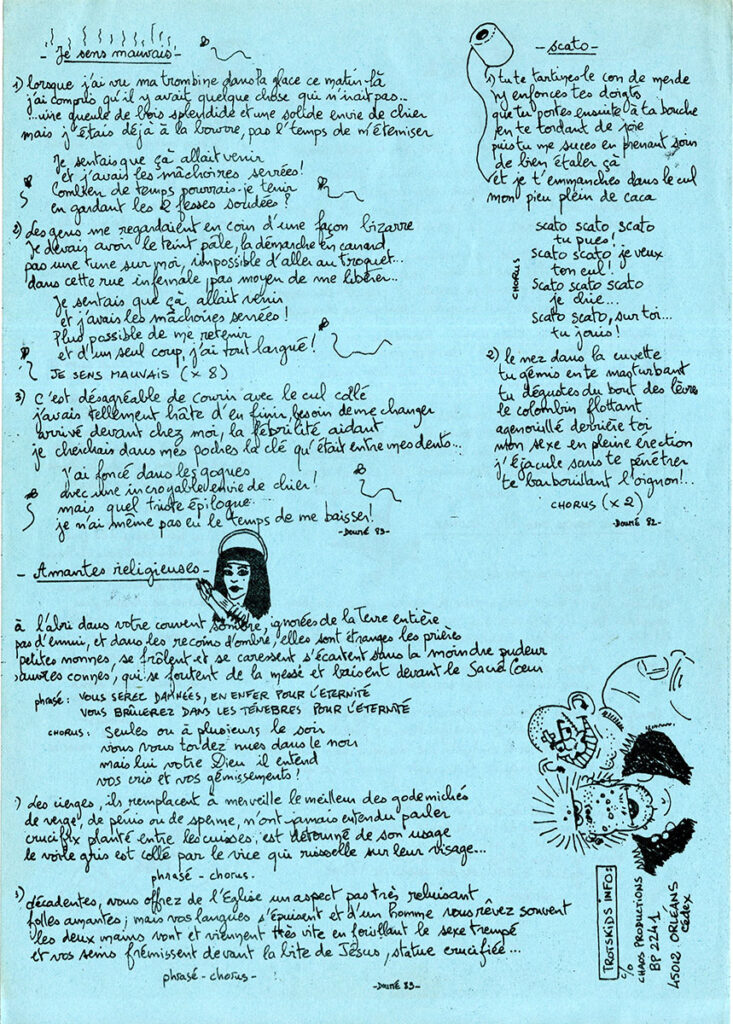 - Je sens mauvais -
1) lorsque j'ai vu ma trombine dans la glace ce matin-là
j'ai compris qu'il y avait quelque chose qui n'irait pas..
..une gueule de bois splendide et une solide envie de chier
mais j'étais déjà à la bourre, pas l'temps de m'éterniser
Je sentais que çà allait venir
et j'avais les mâchoires serrées!
Combien de temps pourrais-je tenir
en gardant les 2 fesses soudées?
2) Les gens me regardaient en coin d'une façon bizarre
Je devais avoir le teint pâle, la démarche en canard
pas une tune sur moi, impossible d'aller au troquet...
dans cette rue infernale, pas moyen de me libérer...
Je sentais que çà allait venir
et j'avais les mâchoires serrées!
Plus possible de me retenir
et d'un seul coup, j'ai tout largué!
JE SENS MAUVAIS (x 8)
3) C'est désagréable de courir avec le cul collé
j'avais tellement hâte d'en finir, besoin de me changer
arrivé devant chez moi, la fébrilité aidant
je cherchais dans mes poches la clé qu'était entre mes dents...
J'ai foncé dans les gogues
avec une incroyable envie de chier!
mais quel triste épilogue
je n'ai même pas eu le temps de me baisser!
- Doumé 83 -
- scato -
1) tu te tartines le con de merde
y enfonces tes doigts
que tu portes ensuite à ta bouche
en te tordant de joie
puis tu me suces en prenant soin
de bien étaler çà
et je t'emmanches dans le cul
mon pieu plein de caca
CHORUS
scato scato, scato
tu pues!
scato scato, je veux
ton cul!
scato scato scato
je chie...
scato scato, sur toi...
tu jouis!
2) le nez dans la cuvette
tu gémis en te masturbant
tu dégustes du bout des lèvres
le colombin flottant
agenouillé derrière toi
mon sexe en pleine érection
j'éjacule sans te pénétrer
te barbouillant l'oignon!..
CHORUS (x 2)
- Doumé 82 -
- Amantes religieuses -
à l'abri dans votre couvent sombre, ignorées de la Terre entière
pas d'ennui, et dans les recoins d'ombre, elles sont étranges les prières
petites nonnes, se frôlent et se caressent s'écartent sans la moindre pudeur
pauvres connes, qui se foutent de la messe et baisent devant le Sacré Coeur
phrasé: VOUS SEREZ DAMNÉES, EN ENFER POUR L'ÉTERNITÉ
VOUS BRÛLEREZ DANS LES TÉNÈBRES POUR L'ÉTERNITÉ
CHORUS: Seules ou à plusieurs le soir
vous vous tordez nues dans le noir
mais lui votre Dieu il entend
vos cris et vos gémissements!
) Les cierges, ils remplacent à merveille le meilleur des godemichés
de verge, de pénis ou de sperme, n'ont jamais entendu parler
crucifix planté entre les cuisses, est détourné de son usage
le voile gris est collé par le vice qui ruisselle sur leur visage...
phrasé - chorus.
3) décadentes, vous offrez de l'Eglise un aspect pas très reluisant
folles amantes; mais vos langues s'épuisent et d'un homme vous rêvez souvent
les deux mains vont et viennent très vite en fouillant le sexe trempé
et vos seins frémissent devant la bite de Jésus, statue crucifiée...
phrasé - chorus -
- Doumé 83 -
TROTSKIDS INFO:
c/o
CHAOS PRODUCTIONS
BP 2241
45012 ORLÉANS
CEDEX